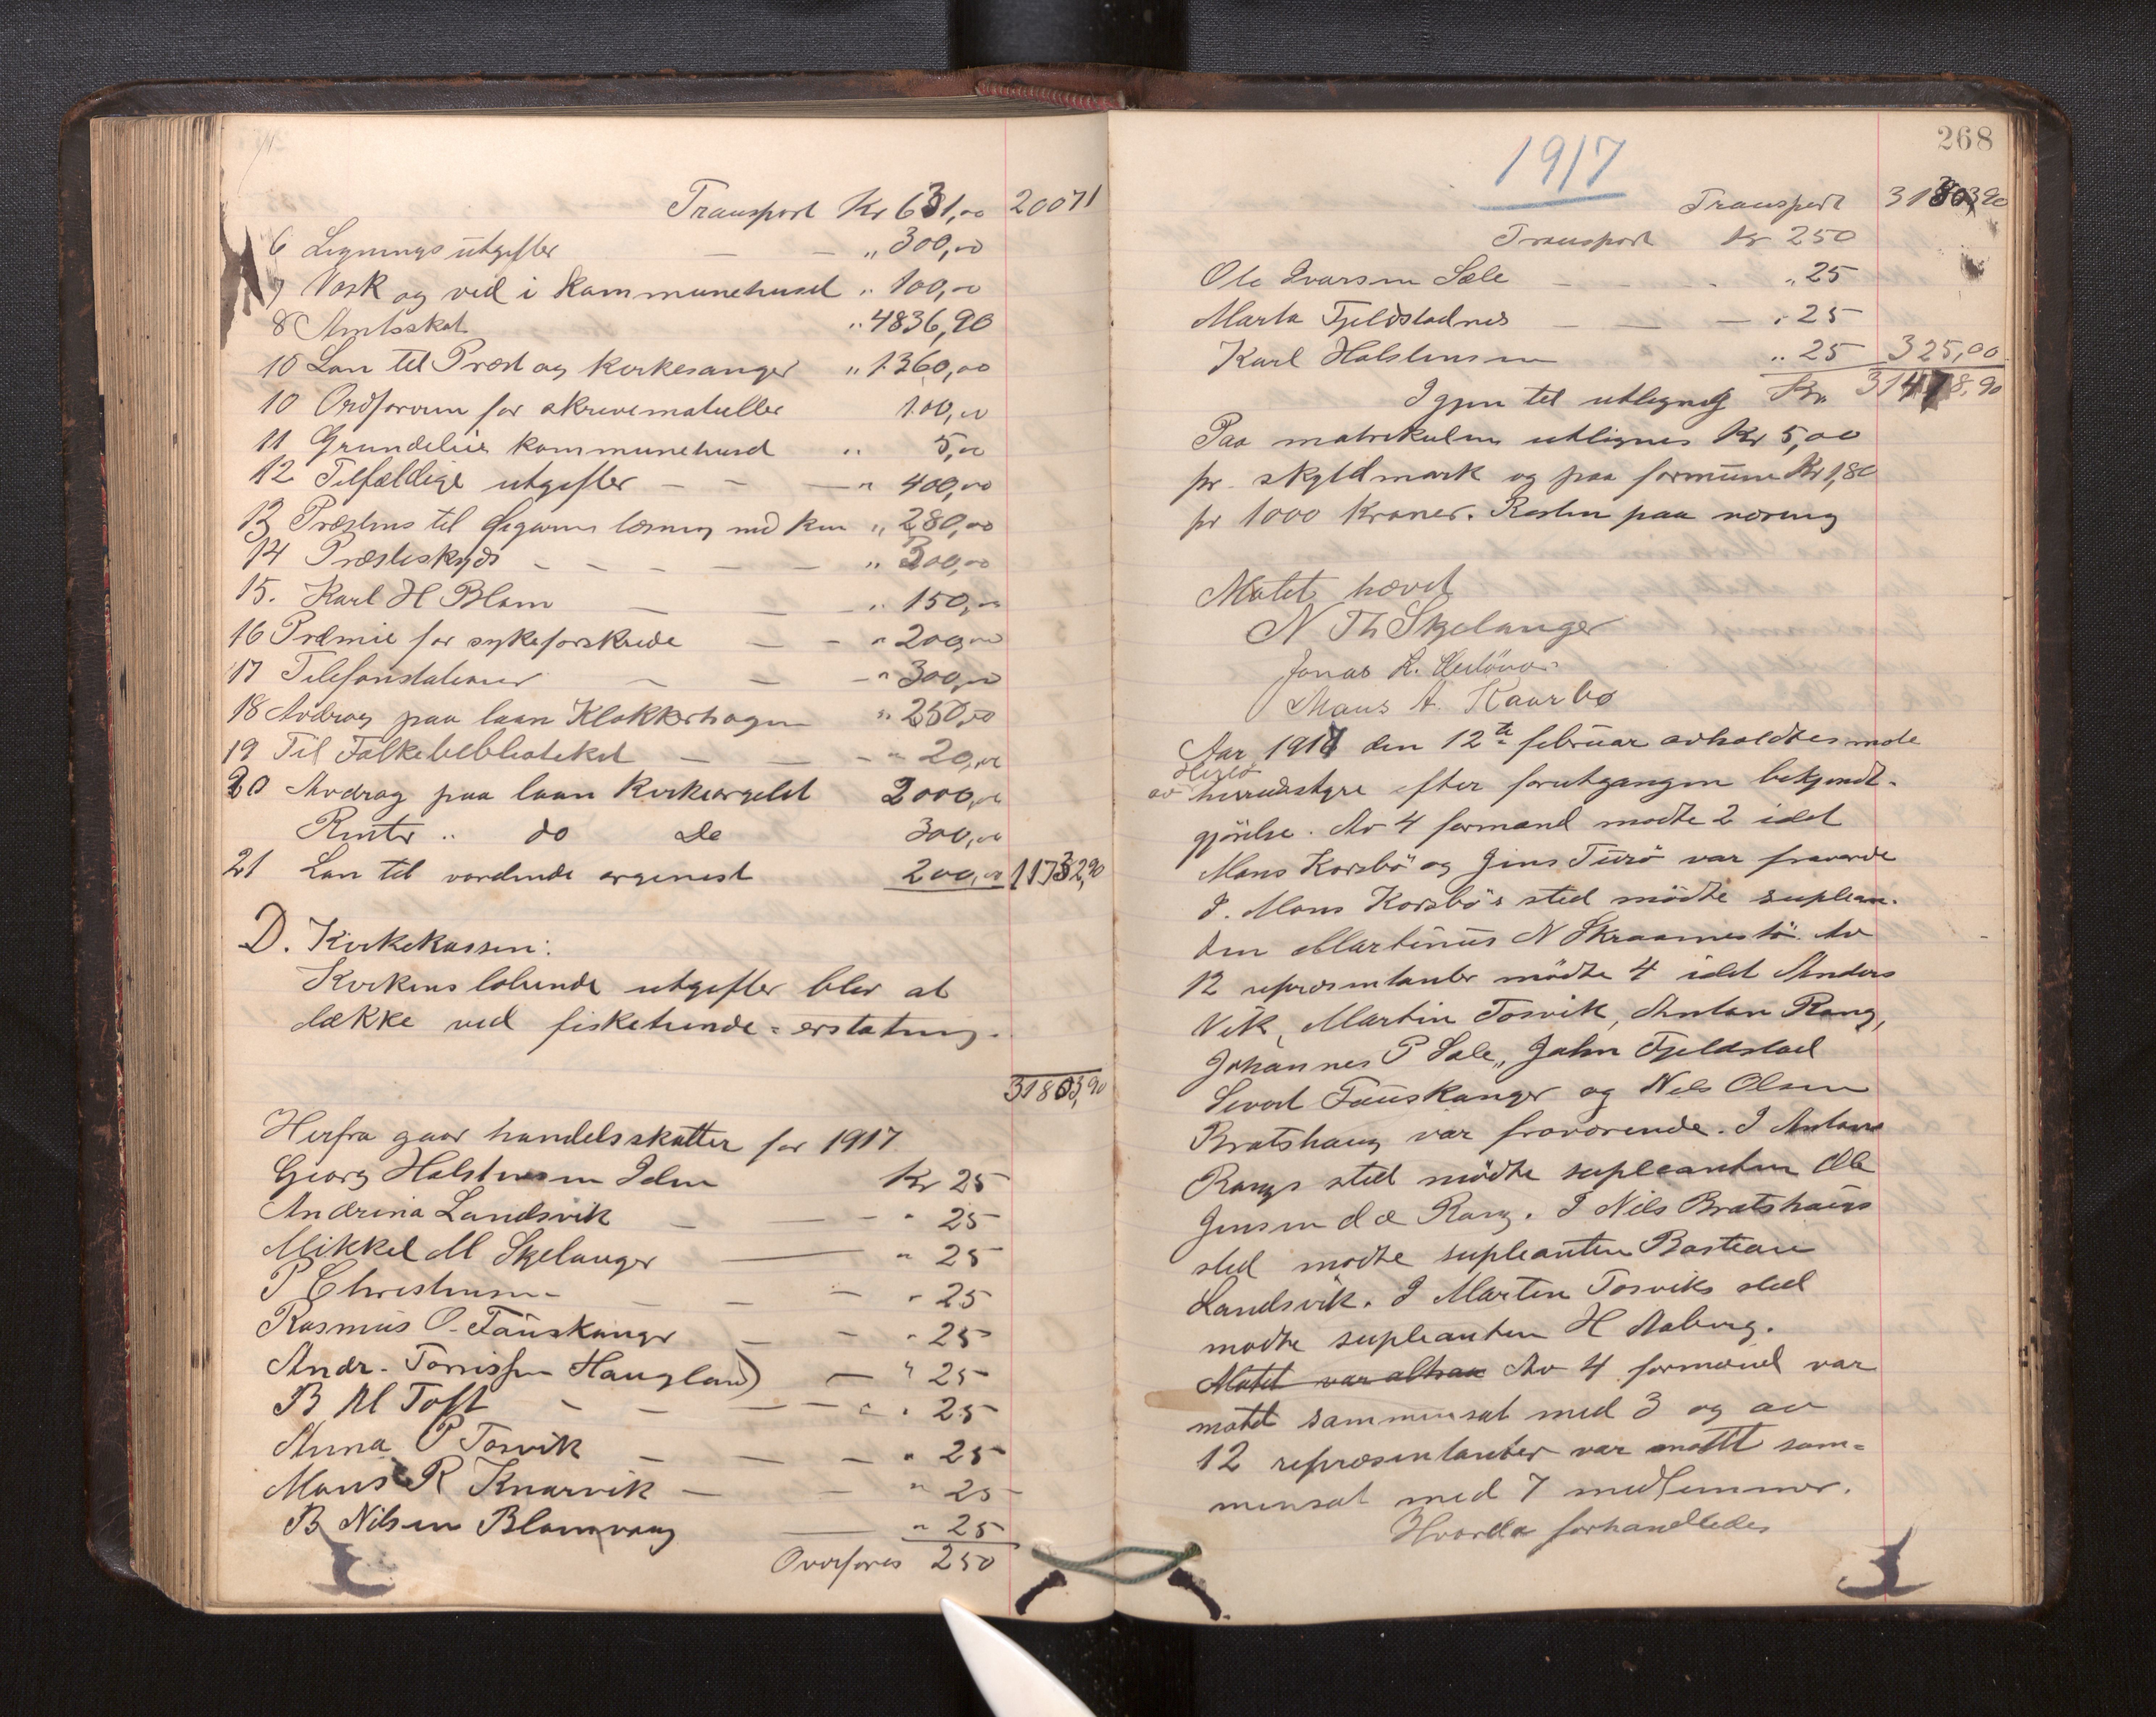 Transport Kr 631,00 20071
6 Ligningsutgifter — — „ 300,00
7 Vask og ved i kommunehuset „ 100,00
8 Amtsskat „ 4836,90
10 Løn til Præst og kirkesanger „ 1360,00
10 Ordføreren for skrivematriller 100,00
11 Grundleie kommunehuset „ 5,00
12 Tilfældige utgifter — — — „ 400,00
13 Præstens til læsning med kon „ 280,00
14 Præsteskyds — — — — — „ 300,00
15. Karl H Blom — — „ 150,00
16 Præmie for sykeforskrede — — „ 200,00
17 Telefonstationer — — — „ 300,00
18 Avdrag paa laan Klokkerhagen „ 250,00
19 Til Folkebiblioteket — — — „ 20,00
20 Avdrag paa laan kirkeorgelet 2000,00
Renter „ do do 300,00
21 Løn til vordende organist 200,00 11732,90
D. Kirkekassen:
Kirkens løbende utgifter blir at
dække ved fisketiende-erstatning.
31803,90
Herfra gaar handelsskatter for 1917
Georg Halstensen Kr 25
Andrina Landsvik — — — „ 25
Mikkel M Skjelanger — „ 25
P Christensen — — — „ 25
Rasmus O. Fauskanger — — „ 25
Andr. Tornissen Haugland — „ 25
B M Toft — — — — „ 25
Anna P Tosvik — — — „ 25
Mons R Knarvik — — „ 25
B Nilsen Blomvaag — „ 25
Overføres 250
268
1917
Transport 31803,90
Transport Kr 250
Ole Ivarsen Sæle — — — „ 25
Marta Fjeldstadnes — — — „ 25
Karl Halstensen „ 25 325,00
Igjen til utligning Kr. 31478,90
Paa matrikulen utlignes Kr 5,00
pr. skyldmark og paa formue Kr 1,80
pr 1000 kroner. Resten paa næring
Møtet hævet
N Th Skjelanger
Jonas L.
Mons A. Kaarbø
Aar 1917 den 12te februar avholdtes møte
Herlø
av herredsstyre efter forutgangen bekjendt-
gjørelse. Av 4 formænd mødte 2 idet
Mons Korsbö og Jens Turö var fraværende
I. Mons Korsbö's sted mödte suplean-
ten Martinus N Skraamestö. Av
12 repræsentanter mödte 4 idet Anders
Vik, Martin Tosvik, Anton Rong,
Johannes P Sæle, John Fjeldstad
Sivert Fauskanger og Nils Olsen
Bratshaug var fraværende. I Antons
Rongs sted mödte supleanten Ole
Jensen d æ Rong. I Nils Bratshaugs
sted mødte supleanten Bastian
Landsvik. I Martin Tosviks sted
mødte supleanten H Aaberg.
Møtet var altsaa Av 4 formænd var
møtet sammensat med 3 og av
12 repræsentanter var møtet sam-
mensat med 7 medlemmer.
Hvorda forhandledes